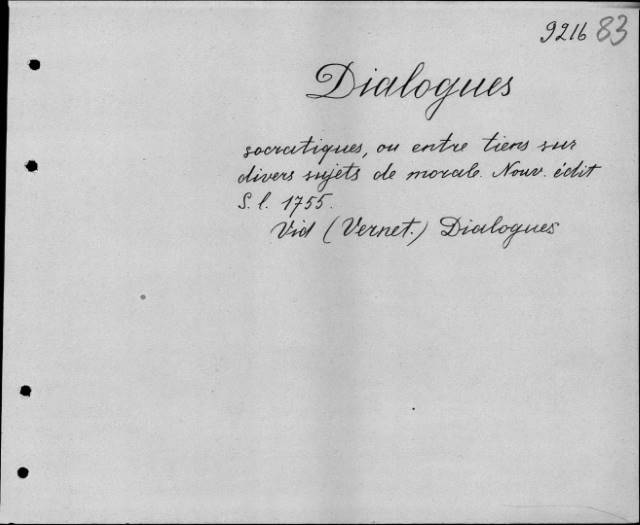 9216 83
Dialogues
socratiques, ou entre tiens sur
divers sujets de morale. Nouv. édit
S. l. 1755.
Vid (Vernet.) Dialogues